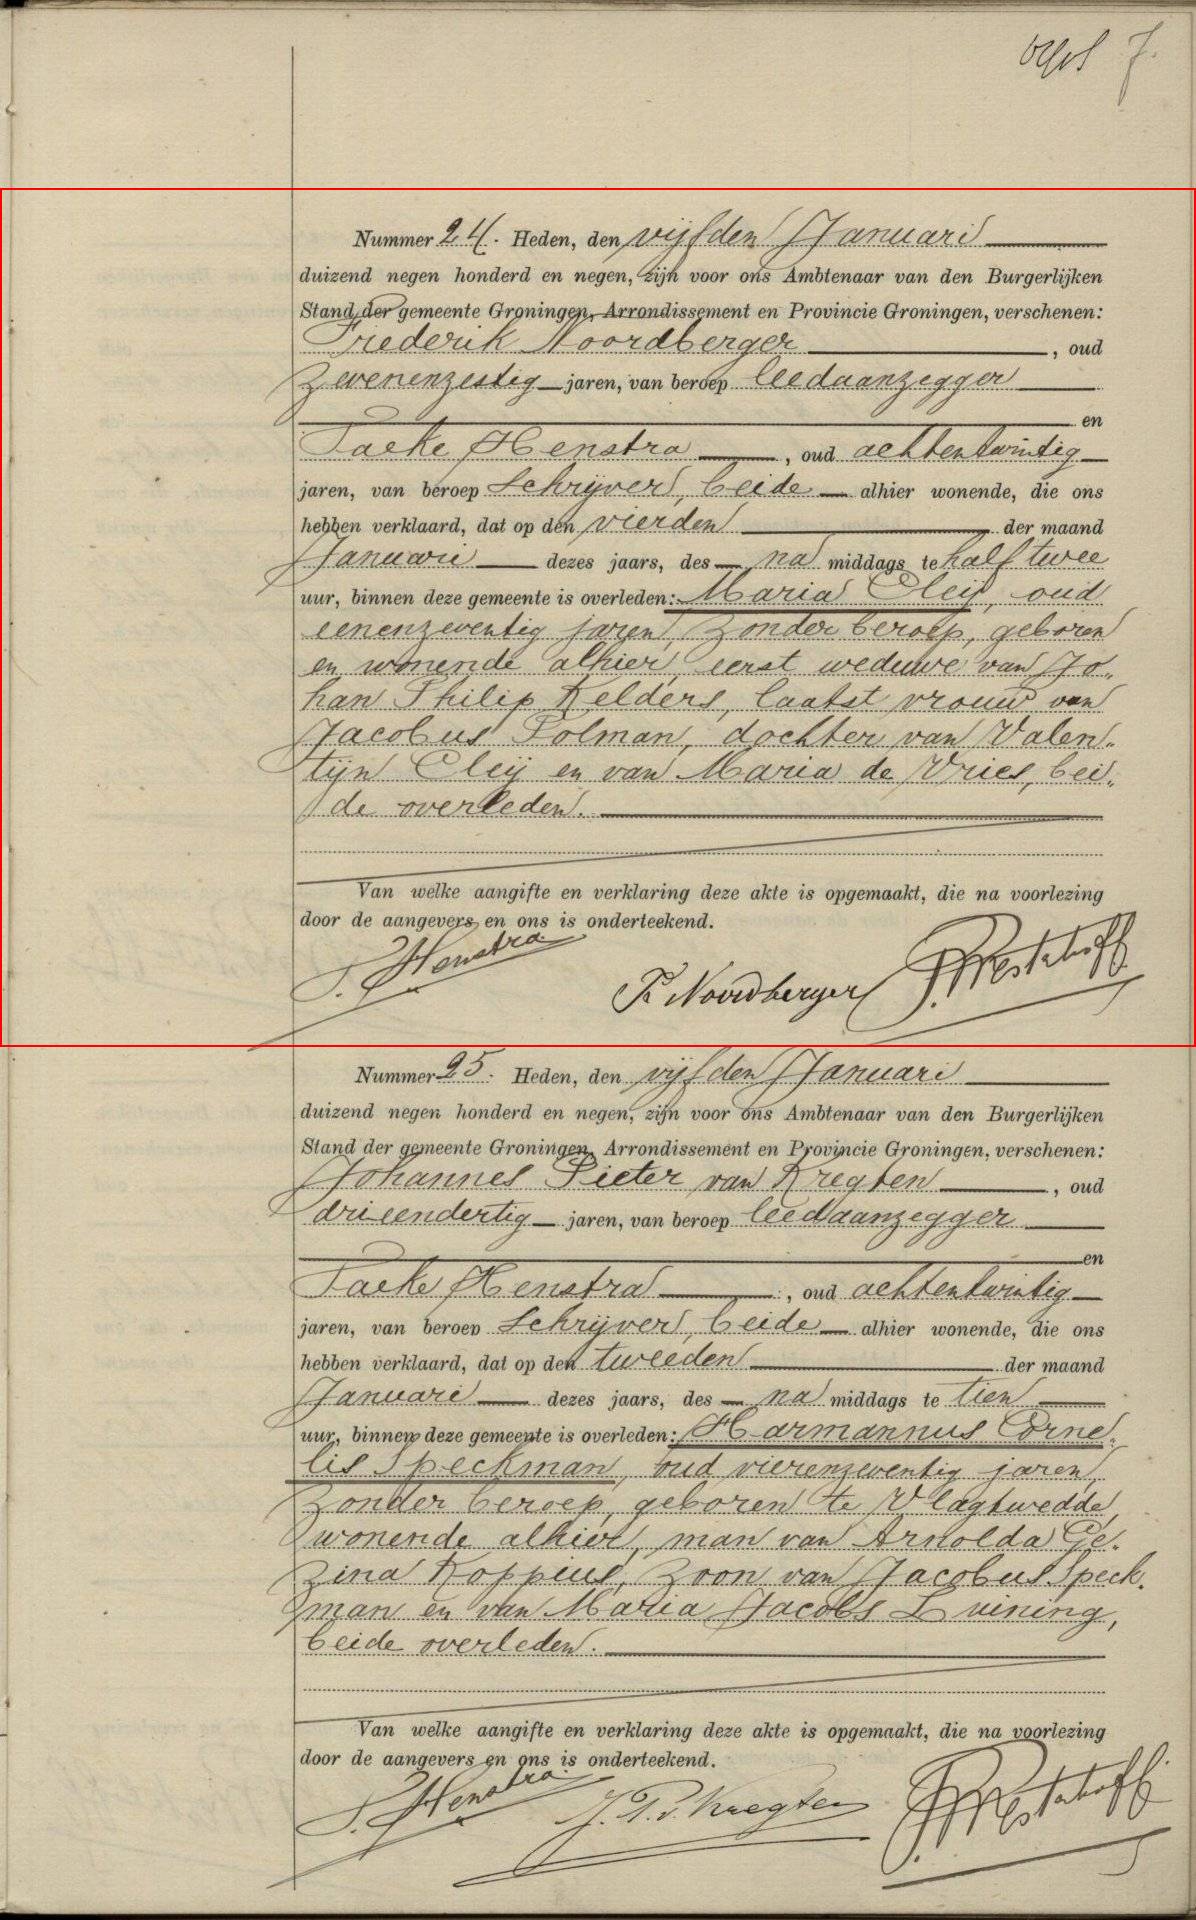 7.
Nummer 24. Heden, den vijfden Januari
duizend negen honderd en negen, zijn voor ons Ambtenaar van den Burgerlijken
Stand der gemeente Groningen, Arrondissement en Provincie Groningen, verschenen:
Frederik Noordberger, oud
zevenenzestig jaren, van beroep leedaanzegger
en
Taeke Henstra, oud achtentwintig
jaren, van beroep Schrijver, beide alhier wonende, die ons
hebben verklaard, dat op den vierden der maand
Januari dezes jaars, des na middags te half twee
uur, binnen deze gemeente is overleden: Maria Cleij, oud
eenenzeventig jaren, zonder beroep, geboren
en wonende alhier, eerst weduwe van Jo„
han Philip Kelders, laatst vrouw van
Jacobus Polman, dochter van Valen„
tijn Cleij en van Maria de Vries, bei„
de overleden.
Van welke aangifte en verklaring deze akte is opgemaakt, die na voorlezing
door de aangevers en ons is onderteekend.
T. Henstra
Fr Noordberger
Nummer 25. Heden, den vijfden Januari
duizend negen honderd en negen, zijn voor ons Ambtenaar van den Burgerlijken
Stand der gemeente Groningen, Arrondissement en Provincie Groningen, verschenen:
Johannes Pieter van Kregten, oud
drieendertig jaren, van beroep leedaanzegger
en
Taeke Henstra, oud achtentwintig
jaren, van beroep Schrijver, beide alhier wonende, die ons
hebben verklaard, dat op den tweeden der maand
Januari dezes jaars, des na middags te tien
uur, binnen deze gemeente is overleden: Harmannus Corne„
lis Speckman, oud vierenzeventig jaren,
zonder beroep, geboren te Vlagtwedde,
wonende alhier, man van Arnolda Ge„
zina Koppius, zoon van Jacobus Speck„
man en van Maria Jacobs Luining,
beide overleden.
Van welke aangifte en verklaring deze akte is opgemaakt, die na voorlezing
door de aangevers en ons is onderteekend.
T. Henstra
J. P. v. Kregten